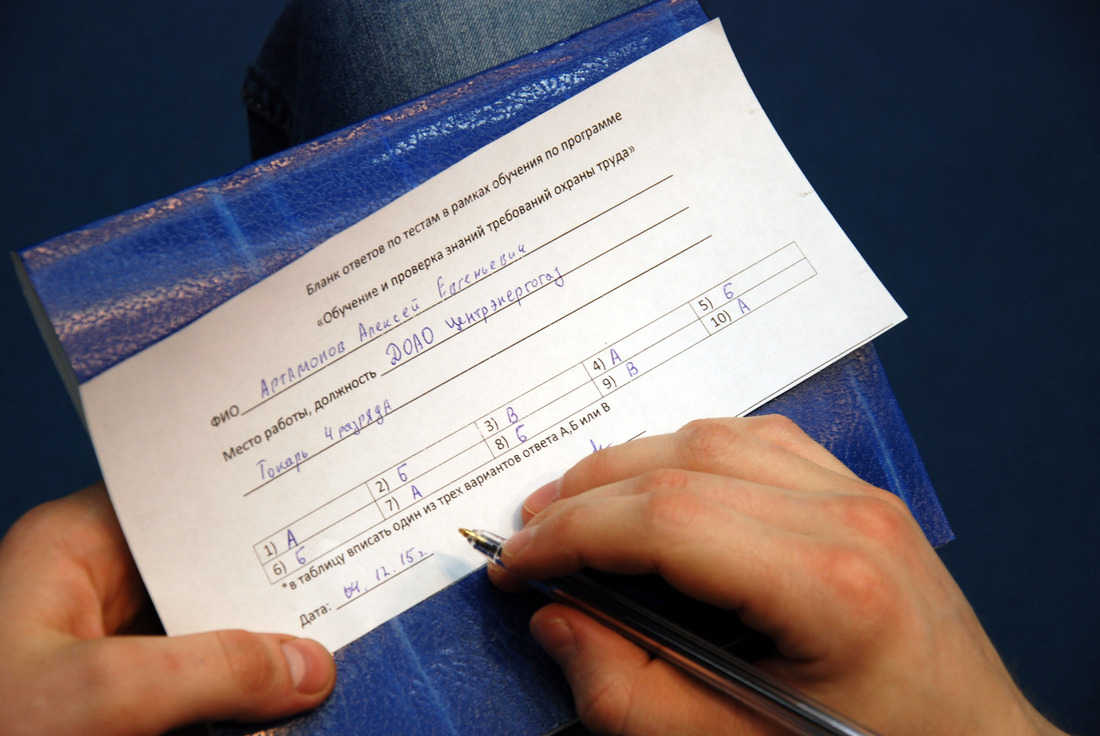 Бланк ответов по тестам в рамках обучения по программе
«Обучение и проверка знаний требований охраны труда»
ФИО Артамонов Алексей Евгеньевич
Место работы, должность ДОАО Центрэнергогаз
Токарь 4 разряда
1) А 2) Б 3) В 4) А 5) Б
6) Б 7) А 8) Б 9) В 10) А
*в таблицу вписать один из трех вариантов ответа А,Б или В
Дата: 04.12.15г